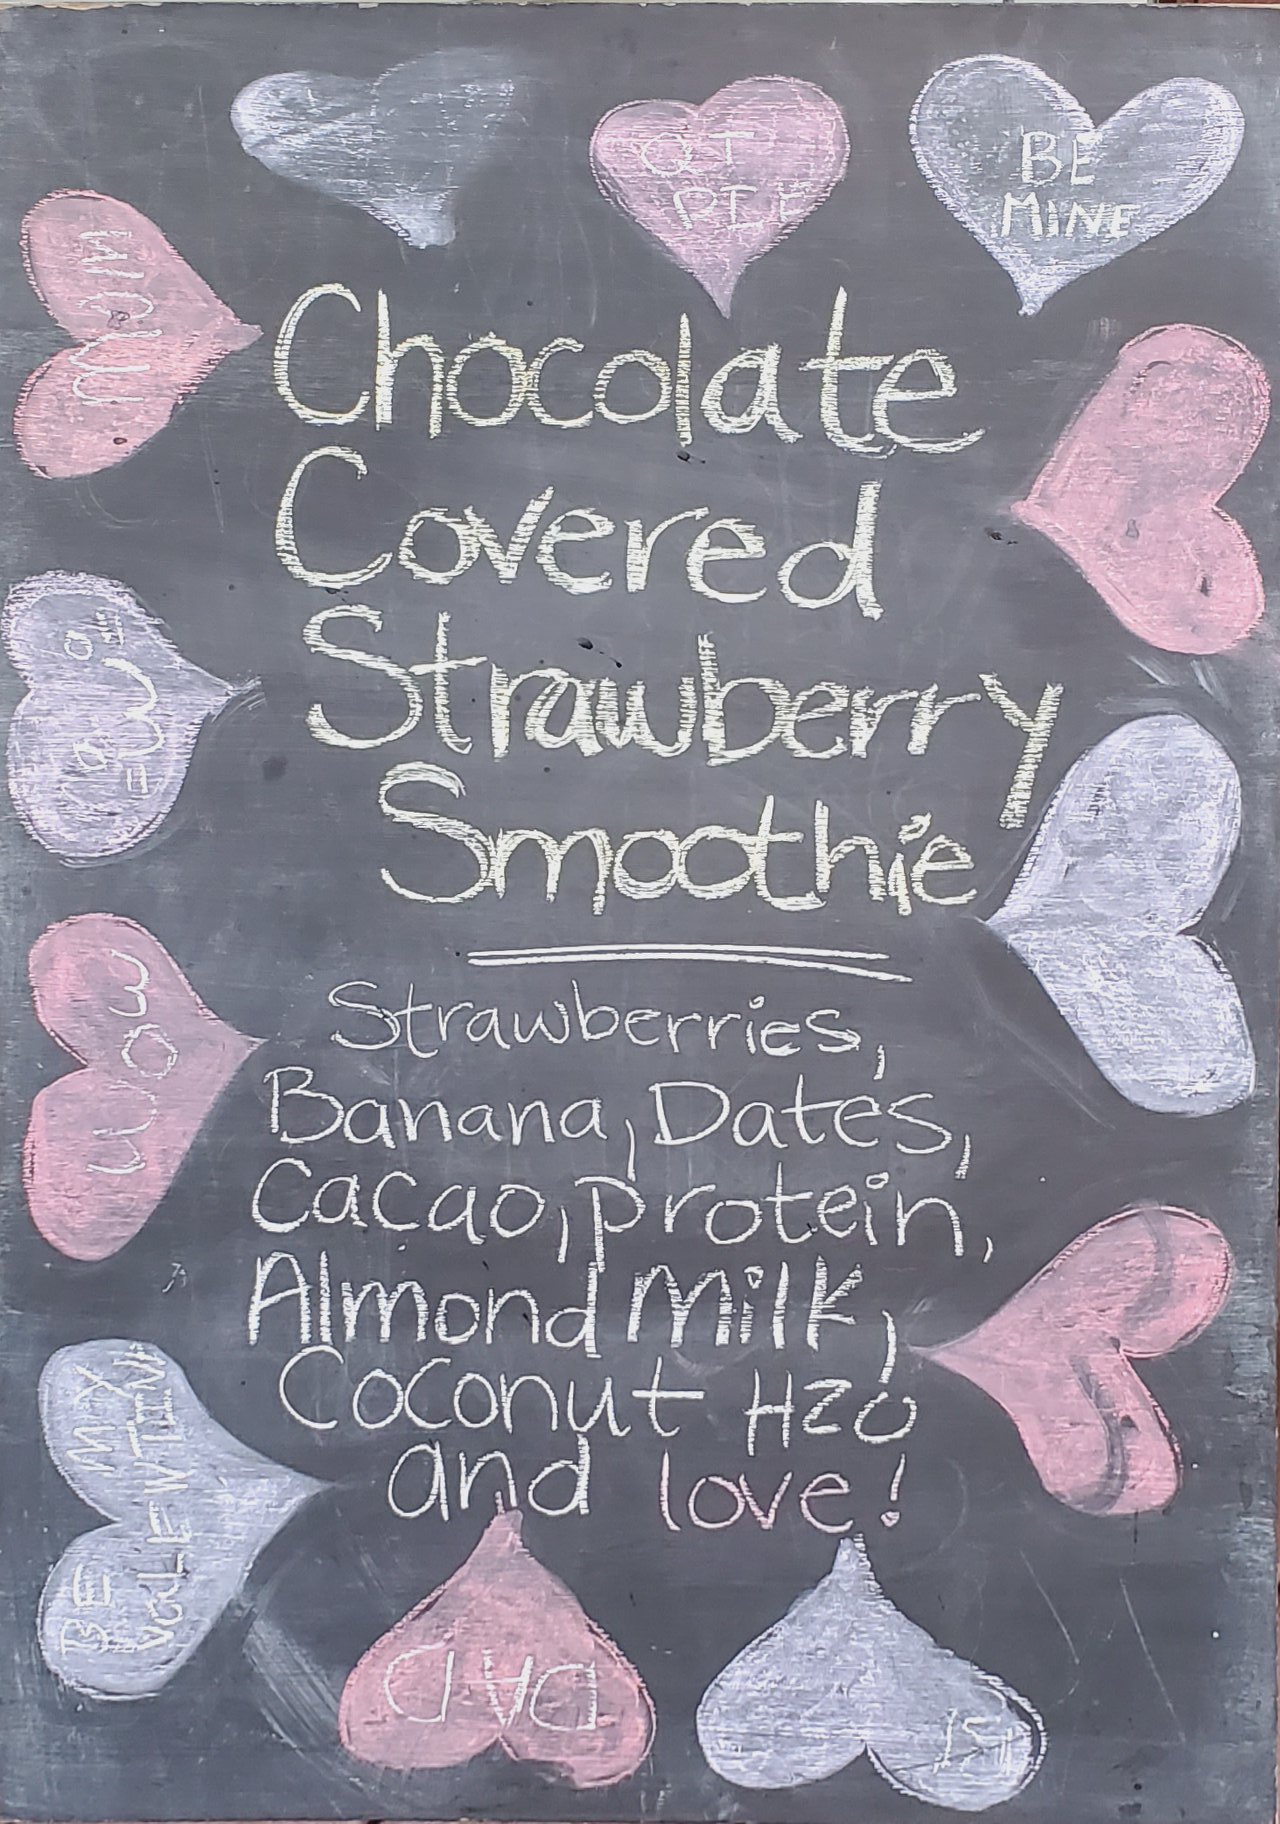 QT
PIE
BE
MINE
MOM
Chocolate
Covered
Strawberry
Smoothie
Strawberries,
Banana, Dates,
Cacao, protein,
Almond Milk,
Coconut H2O
and love!
WOW
BE MY
DAD